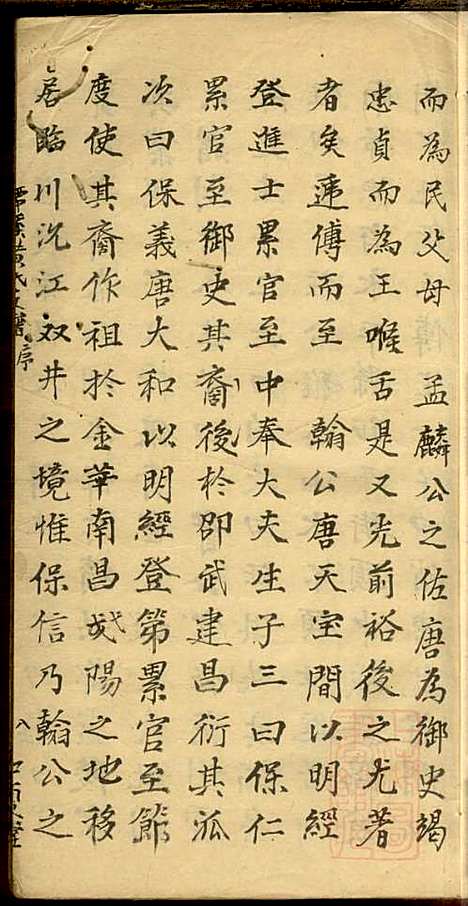 而為民父母 孟麟公之佐唐為御史竭
忠貞而為王喉舌是又光前裕後之尤著
者矣遞傳而至 翰公唐天宝間以明經
登進士累官至中奉大夫生子三曰保仁
累官至御史其裔後於邵武建昌衍其派
次曰保義唐大和以明經登第累官至節
度使其裔作祖於金華南昌弋陽之地移
居臨川沉江双井之境惟保信乃翰公之
黃氏 序
八